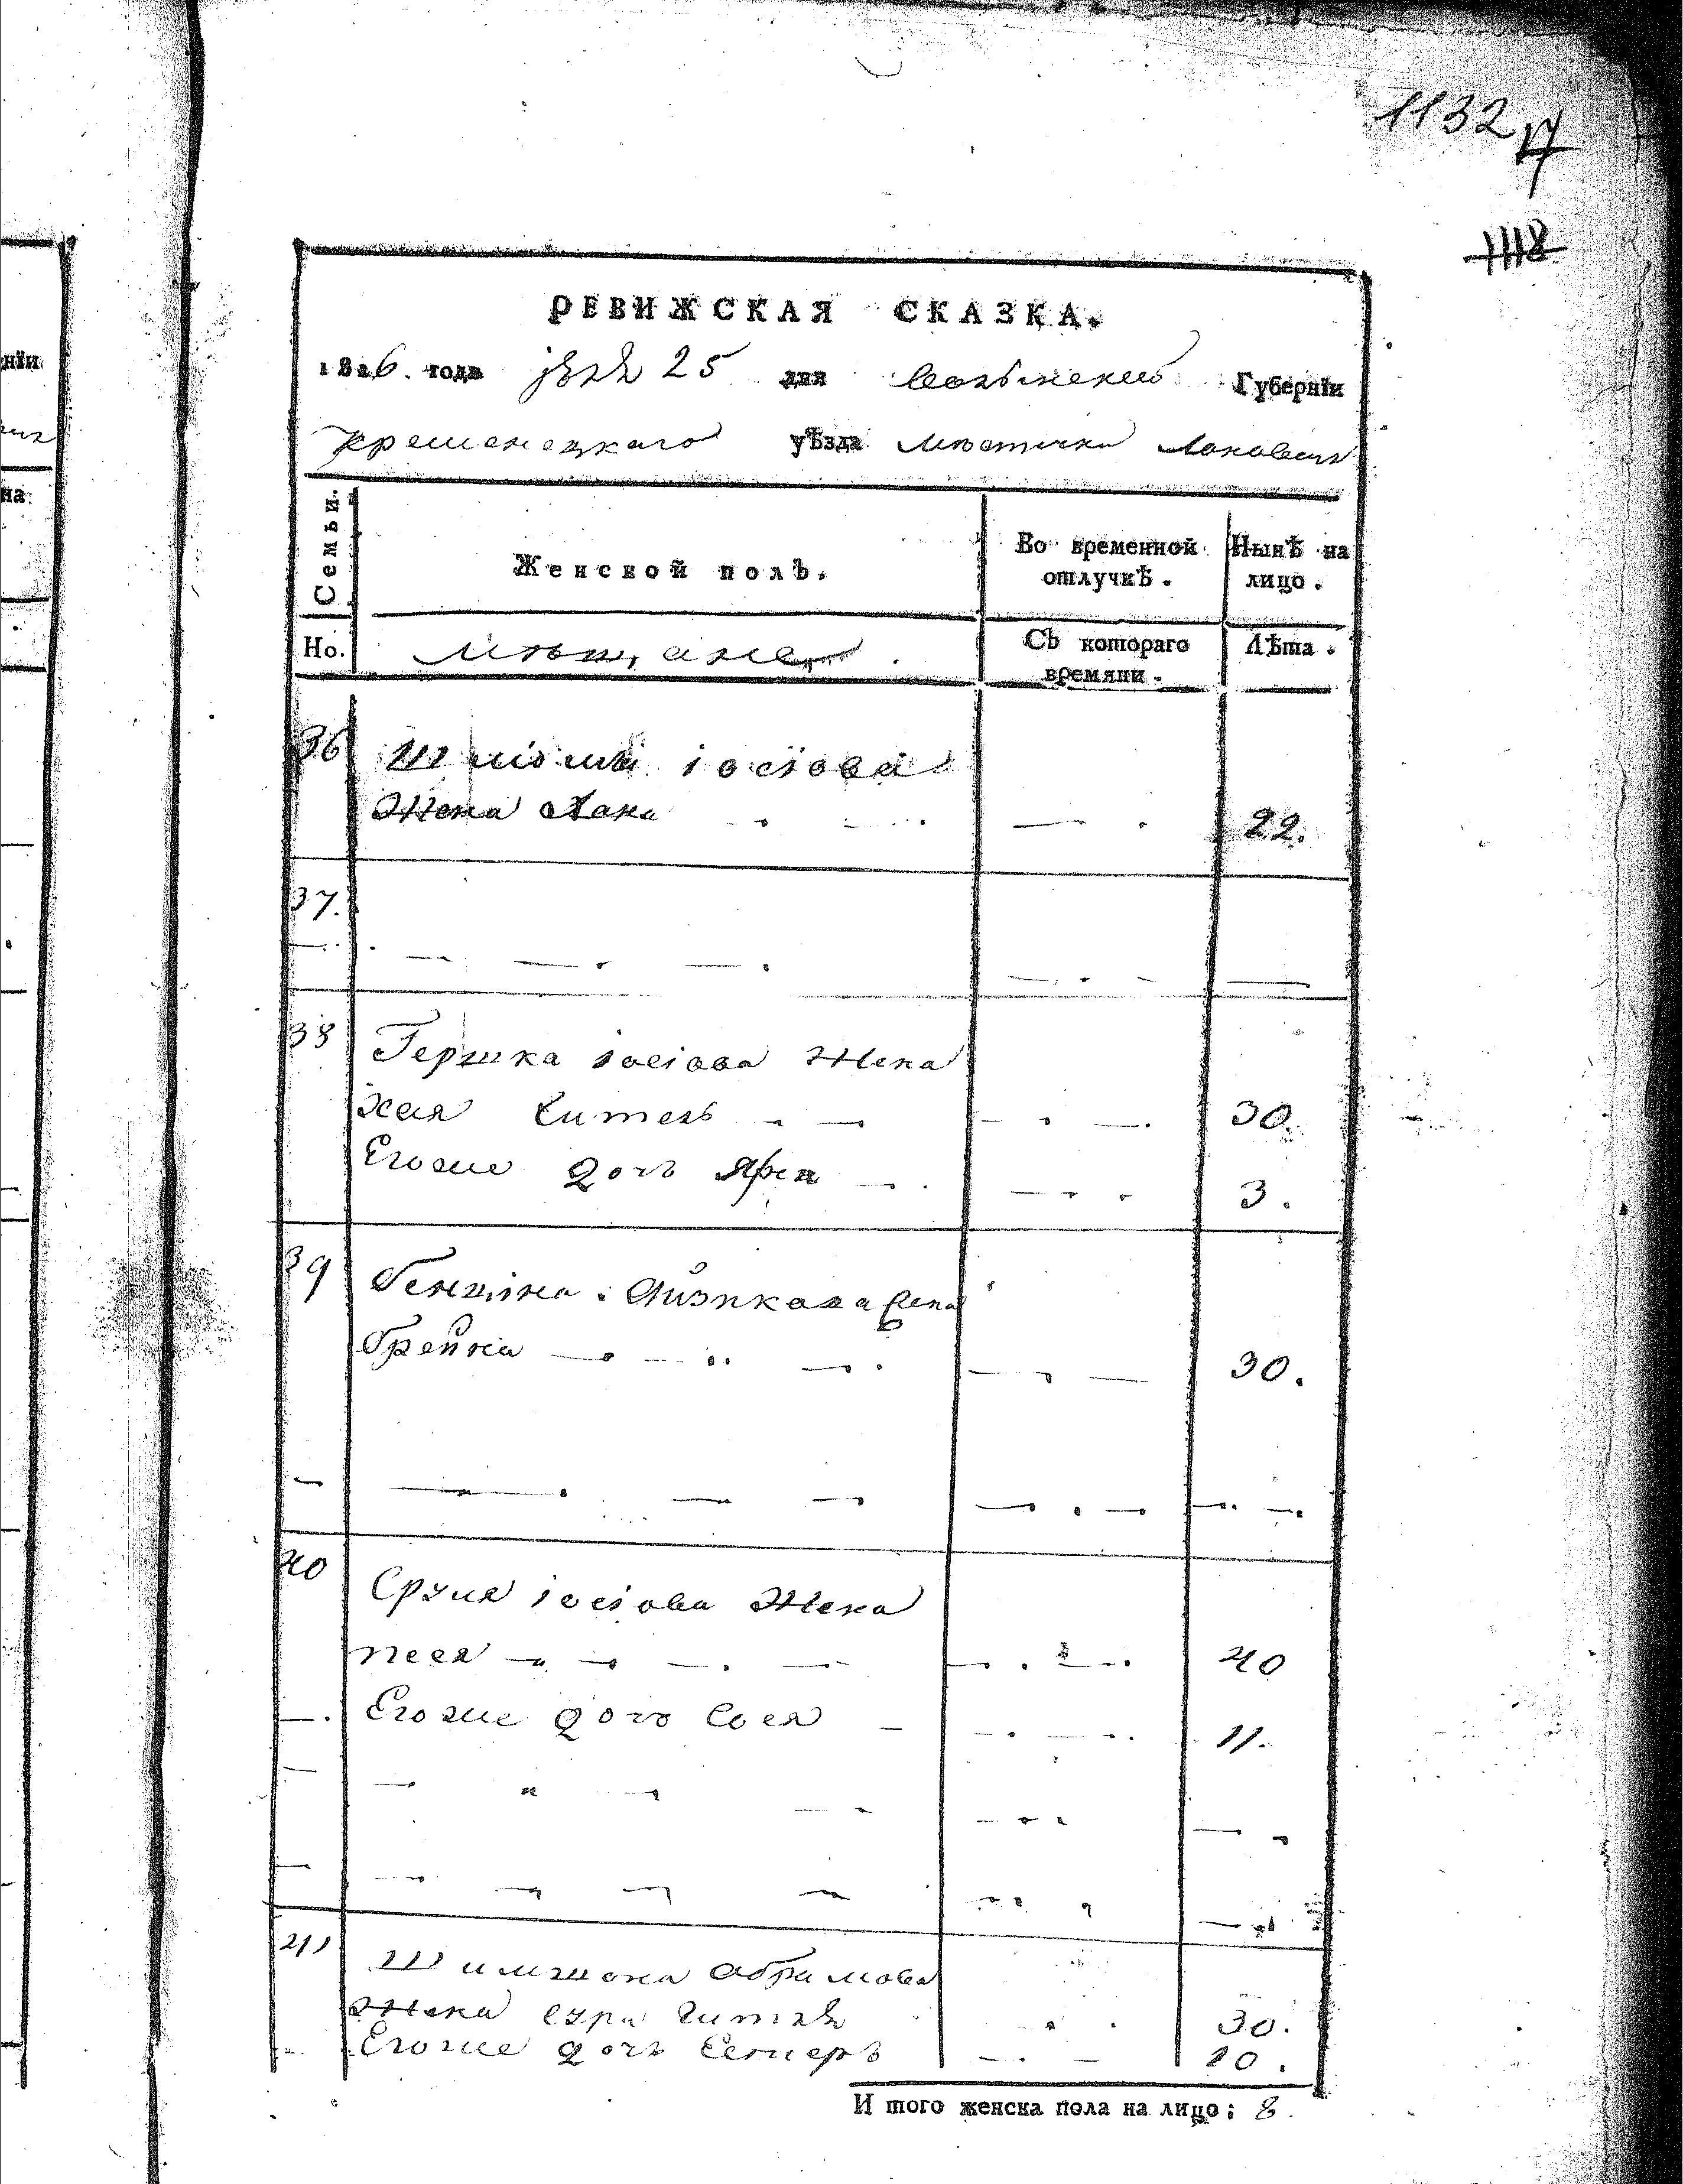 1132
1118
РЕВИЖСКАЯ СКАЗКА.
1816. года 25 дня Волынской Губерніи
Кременецкаго уѣзда мѣстечка
Семьи.
Женской полъ.
Во временной отлучкѣ.
Нынѣ на лицо.
Но.
мѣщане
Съ котораго времяни.
Лѣта.
36 іосіова
Жена Хана 22.
37.
38 Гершка іосіова Жена
Хая Гитель 30.
Егоже дочь 3.
39 Айзикова Жена
Брейна 30.
40 Сруля іосіова Жена
песя 40
Егоже дочь Сося 11.
41 Шимшона Абрамова
Жена сура Гитля 30.
Егоже дочь Естеръ 10.
И того женска пола на лицо: 8.
нїи
на